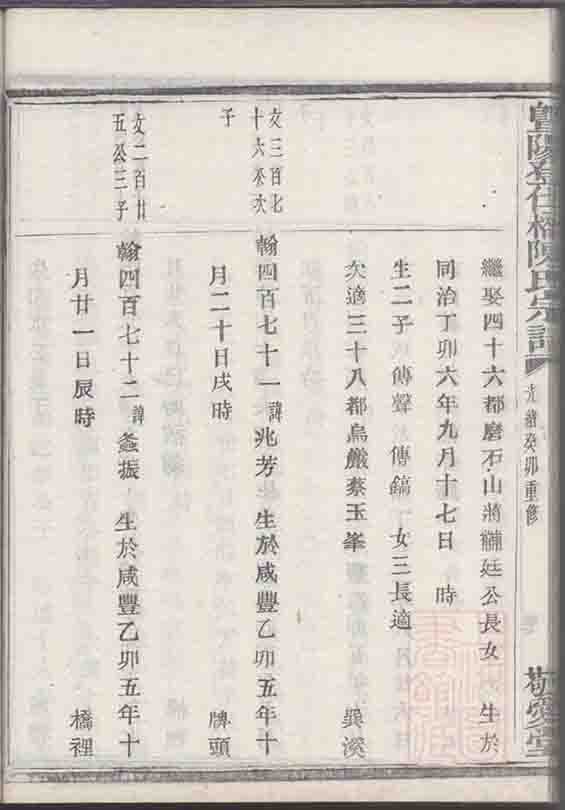 暨陽孝仕橋陳氏宗譜
光緒癸卯重修
敬愛堂
繼娶四十六都磨石山蔣黼廷公長女 生於
同治丁卯六年九月十七日 時
生二子 傳聲 傳鎬 女三長適
次適三十八都烏巖蔡玉峯 巽溪
文三百七十六公次子
翰四百七十一 諱兆芳 生於咸豐乙卯五年十
月二十日戌時 牌頭
文二百廿五公三子
翰四百七十二 諱螽振 生於咸豐乙卯五年十
月廿一日辰時 橋裡